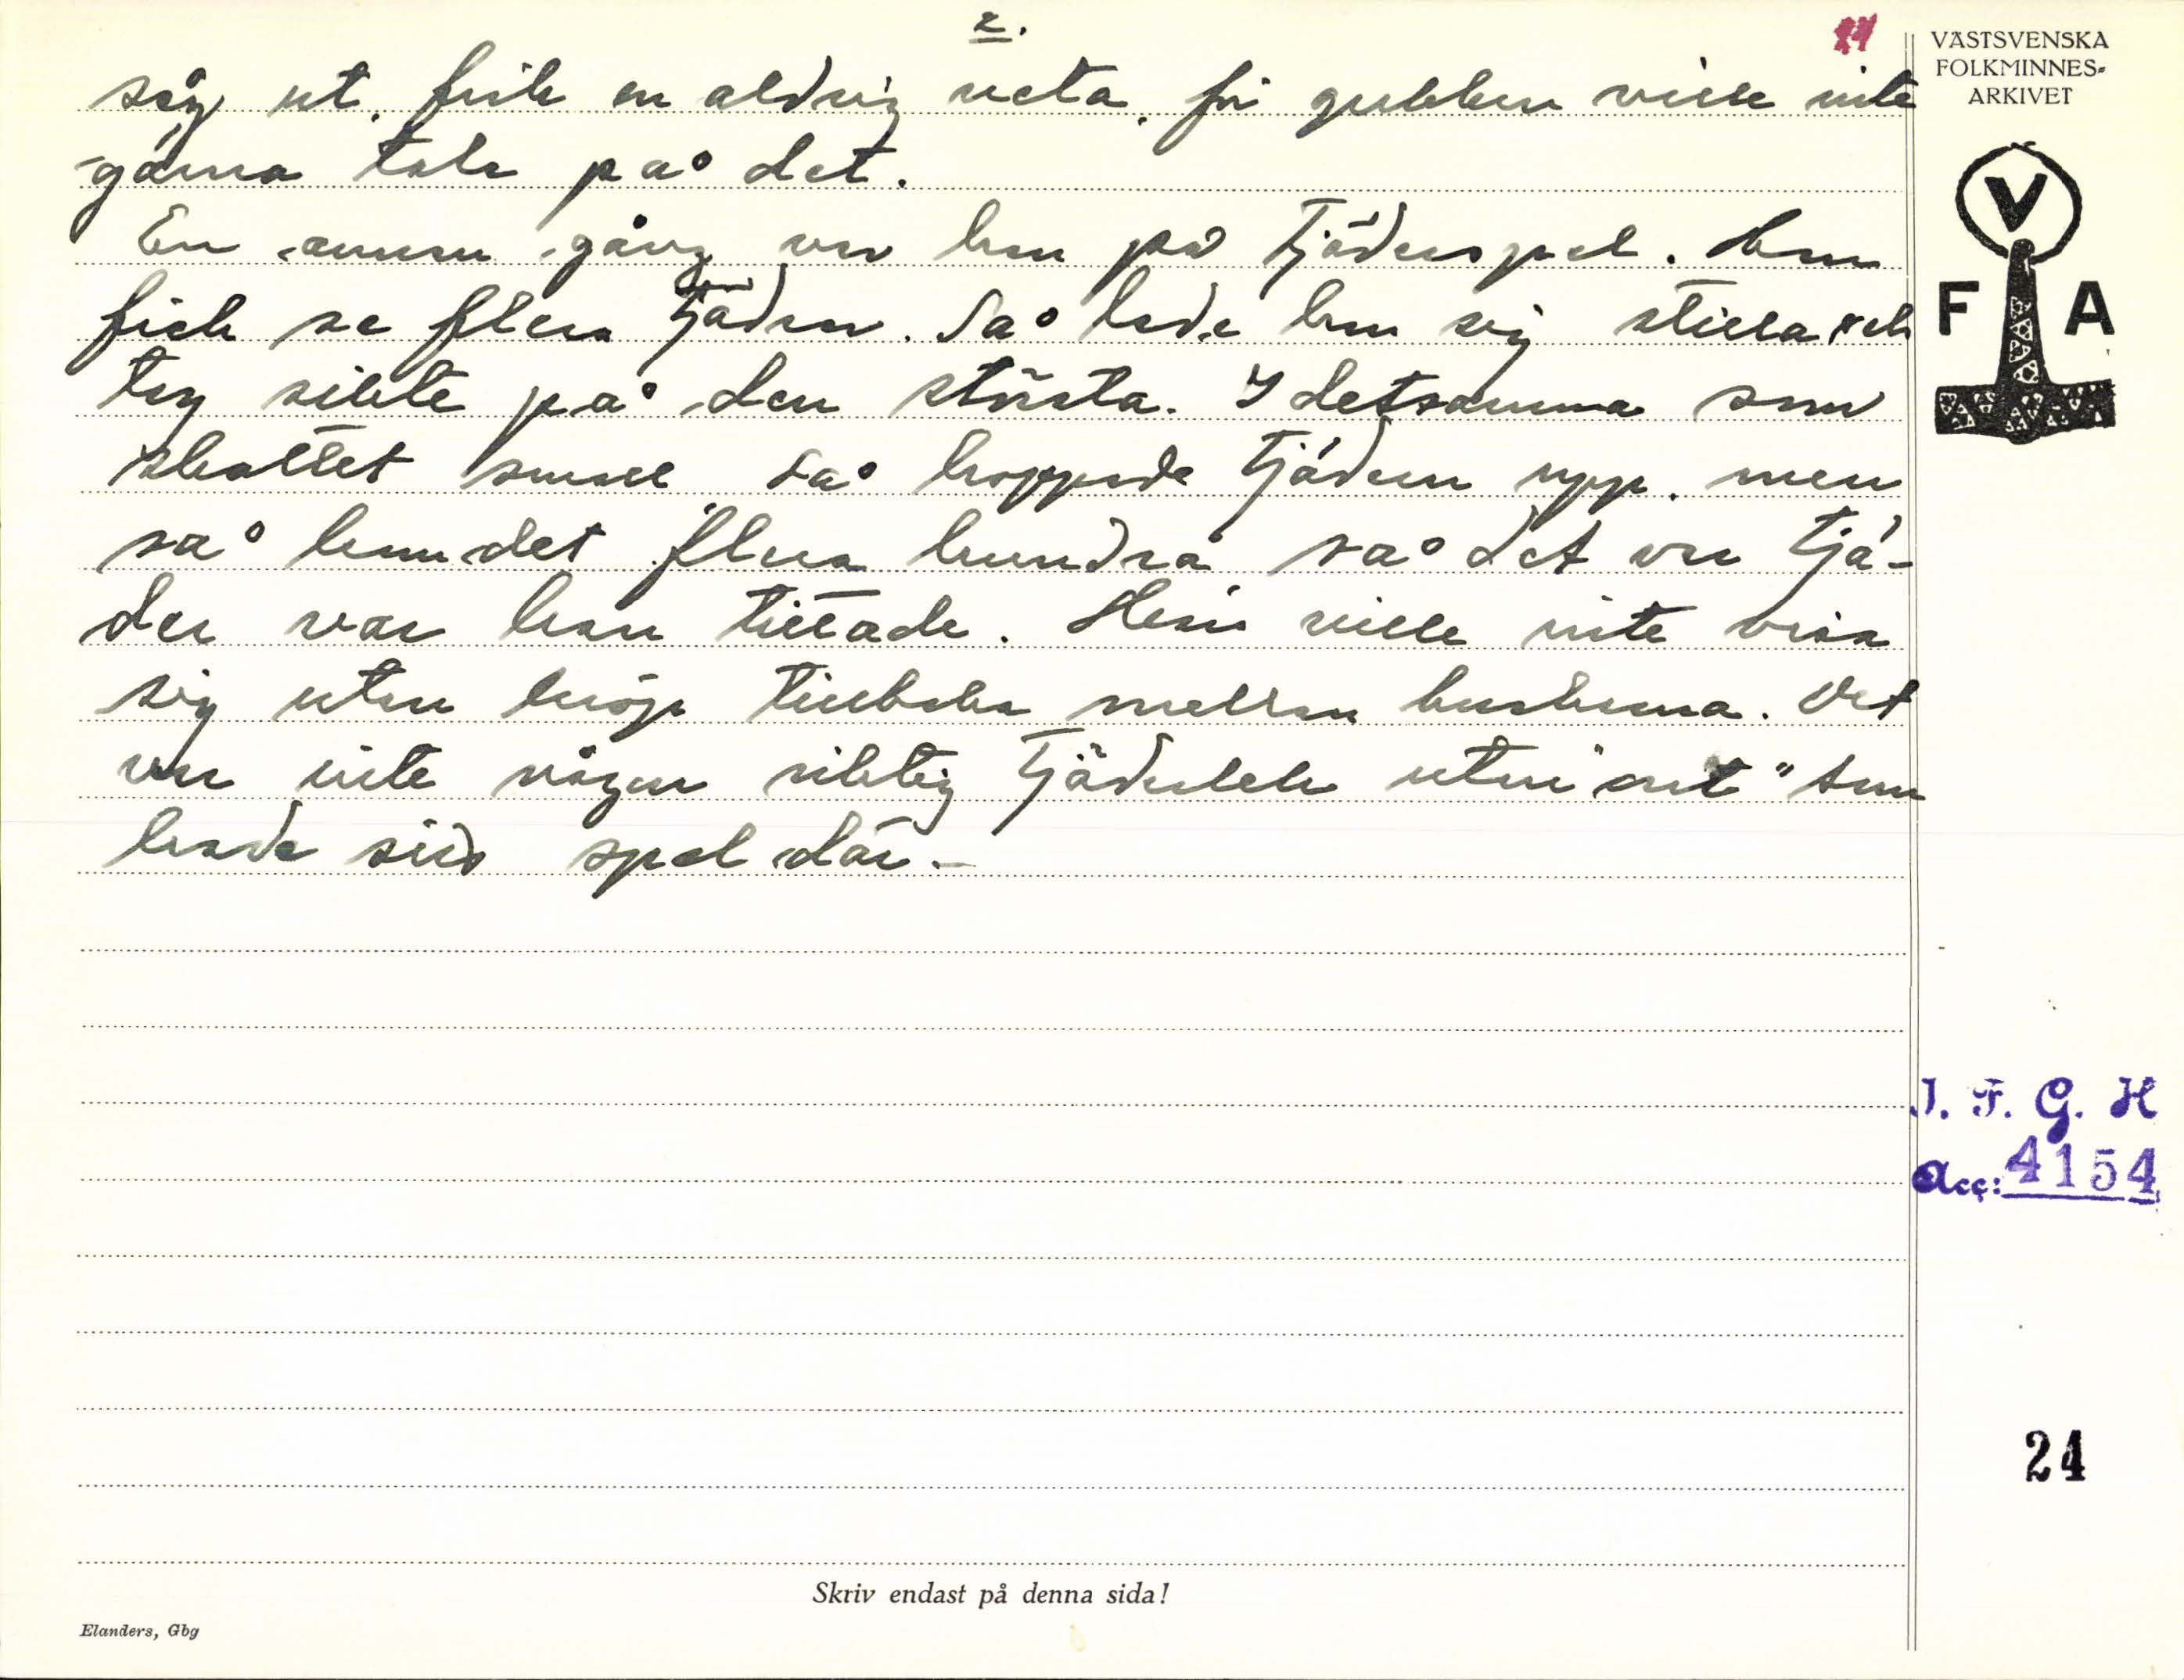 2.
24
såg ut, fick en aldrig veta, för gubben ville inte
gärna tala på det.
En annan gång var han på tjäderspel. Han
fick se flera tjädrar. Så lade han sig stilla och
tog sikte på den största. I detsamma som
skottet small, så hoppade tjädern upp, men
så kom det flera hundra så det var tjä-
der var han tittade. Han ville inte visa
sig utan kröp tillbaka mellan buskarna. Det
var inte någon riktig tjäderlek utan "ont" som
hade sitt spel där.-
VÄSTSVENSKA
FOLKMINNES-
ARKIVET
V
F A
I. F. G. H
Acc: 4154
24
Skriv endast på denna sida!
Elanders, Gbg